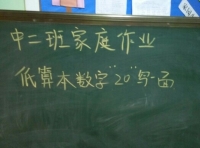 中二班家庭作业
低算本数字"20"写一面